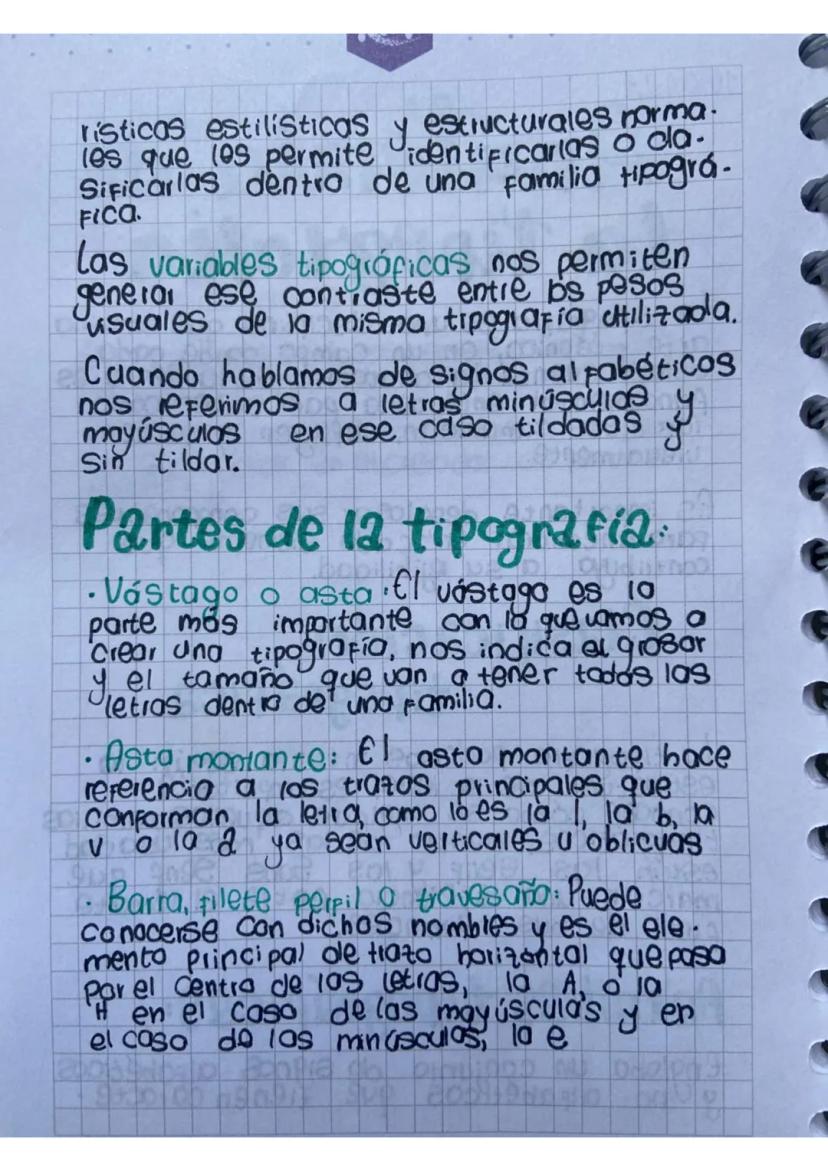 rísticas estilísticas y estructurales norma-
les que les permite identificarlas o cla-
sificarlas dentro de una familia tipográ-
fica.
Las variables tipográficas nos permiten
generar ese contraste entre los pesos
usuales de la misma tipografía utilizada.
Cuando hablamos de signos alfabéticos
nos referimos a letras minúsculas y
mayúsculas en ese caso tildadas y
sin tildar.
Partes de la tipografía:
· Vástago o asta: El vástago es la
parte más importante con la que vamos a
crear una tipografía, nos indica el grosor
y el tamaño que van a tener todas las
letras dentro de una familia.
· Asta montante: El asta montante hace
referencia a los trazos principales que
conforman la letra, como lo es la l, la b, la
v o la d ya sean verticales u oblicuas
· Barra, filete perfil o travesaño: Puede
conocerse con dichos nombres y es el ele-
mento principal de trazo horizontal que pasa
por el centro de las letras, la A, o la
H en el caso de las mayúsculas y en
el caso de las minúsculas, la e